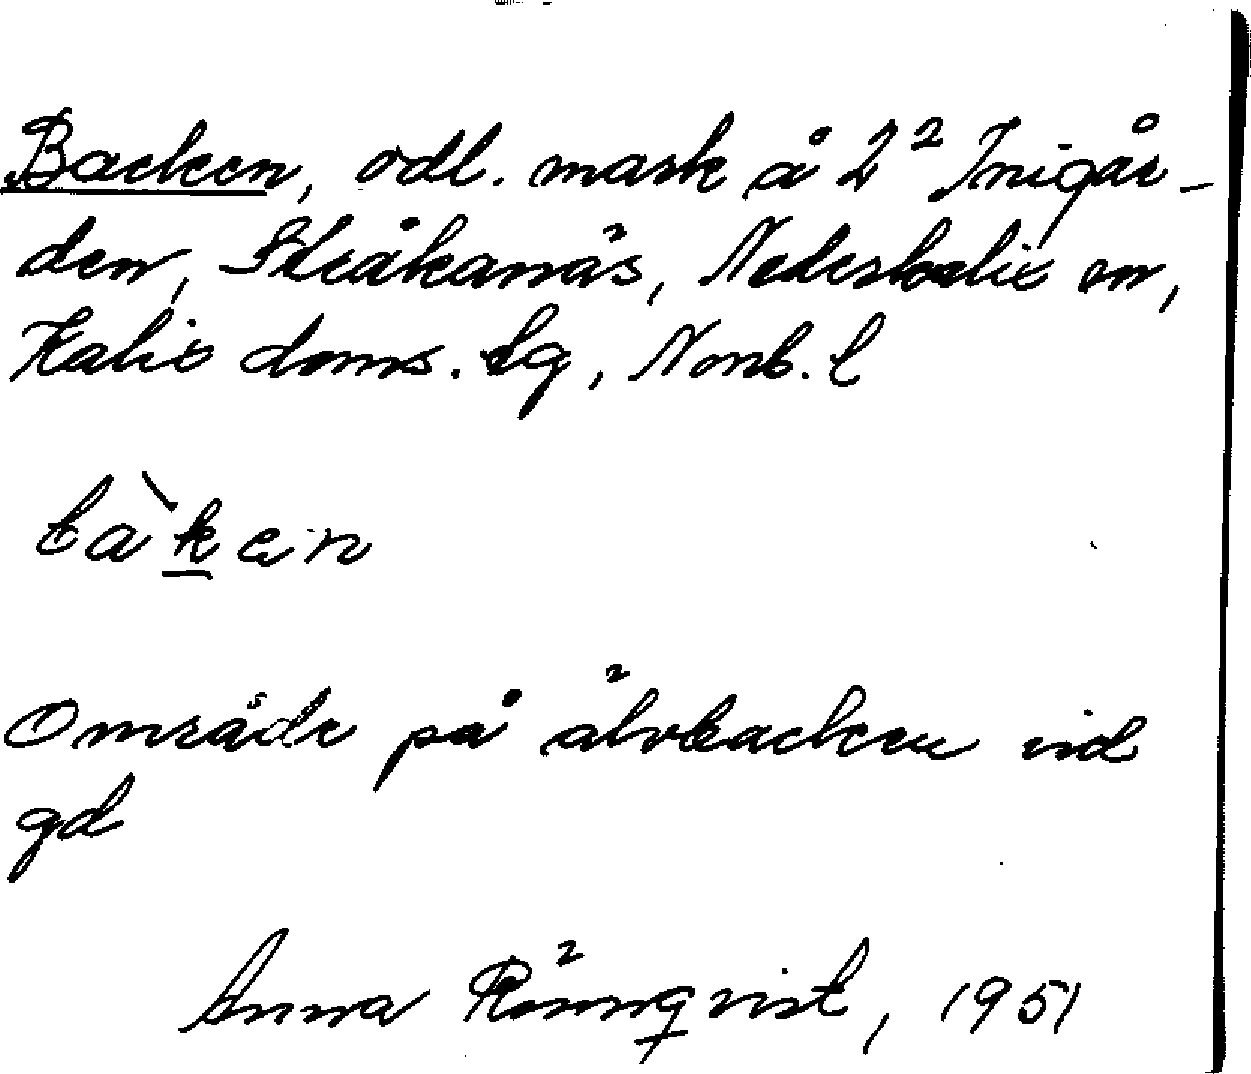 Backen, odl. mark å 2² Inigår-
den, Stråkanäs, Nederkalix sn,
Kalix doms. lg, Norrb. l
bàken
Område på älvbacken vid
gd
Anna Rönnqvist, 1951